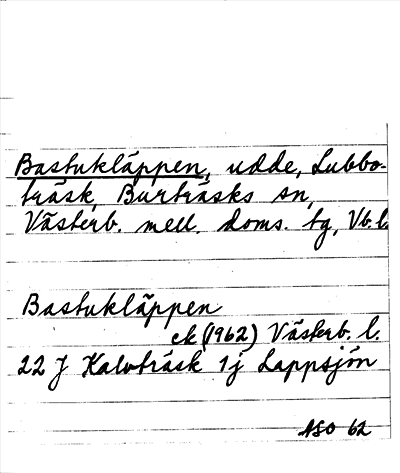 Bastukläppen, udde, Lubbo-
träsk, Burträsks sn,
Västerb. mell. doms. tg, Vb. l.
Bastukläppen
ek (1962) Västerb. l.
22 J Kalvträsk 1j Lappsjön
ASO 62